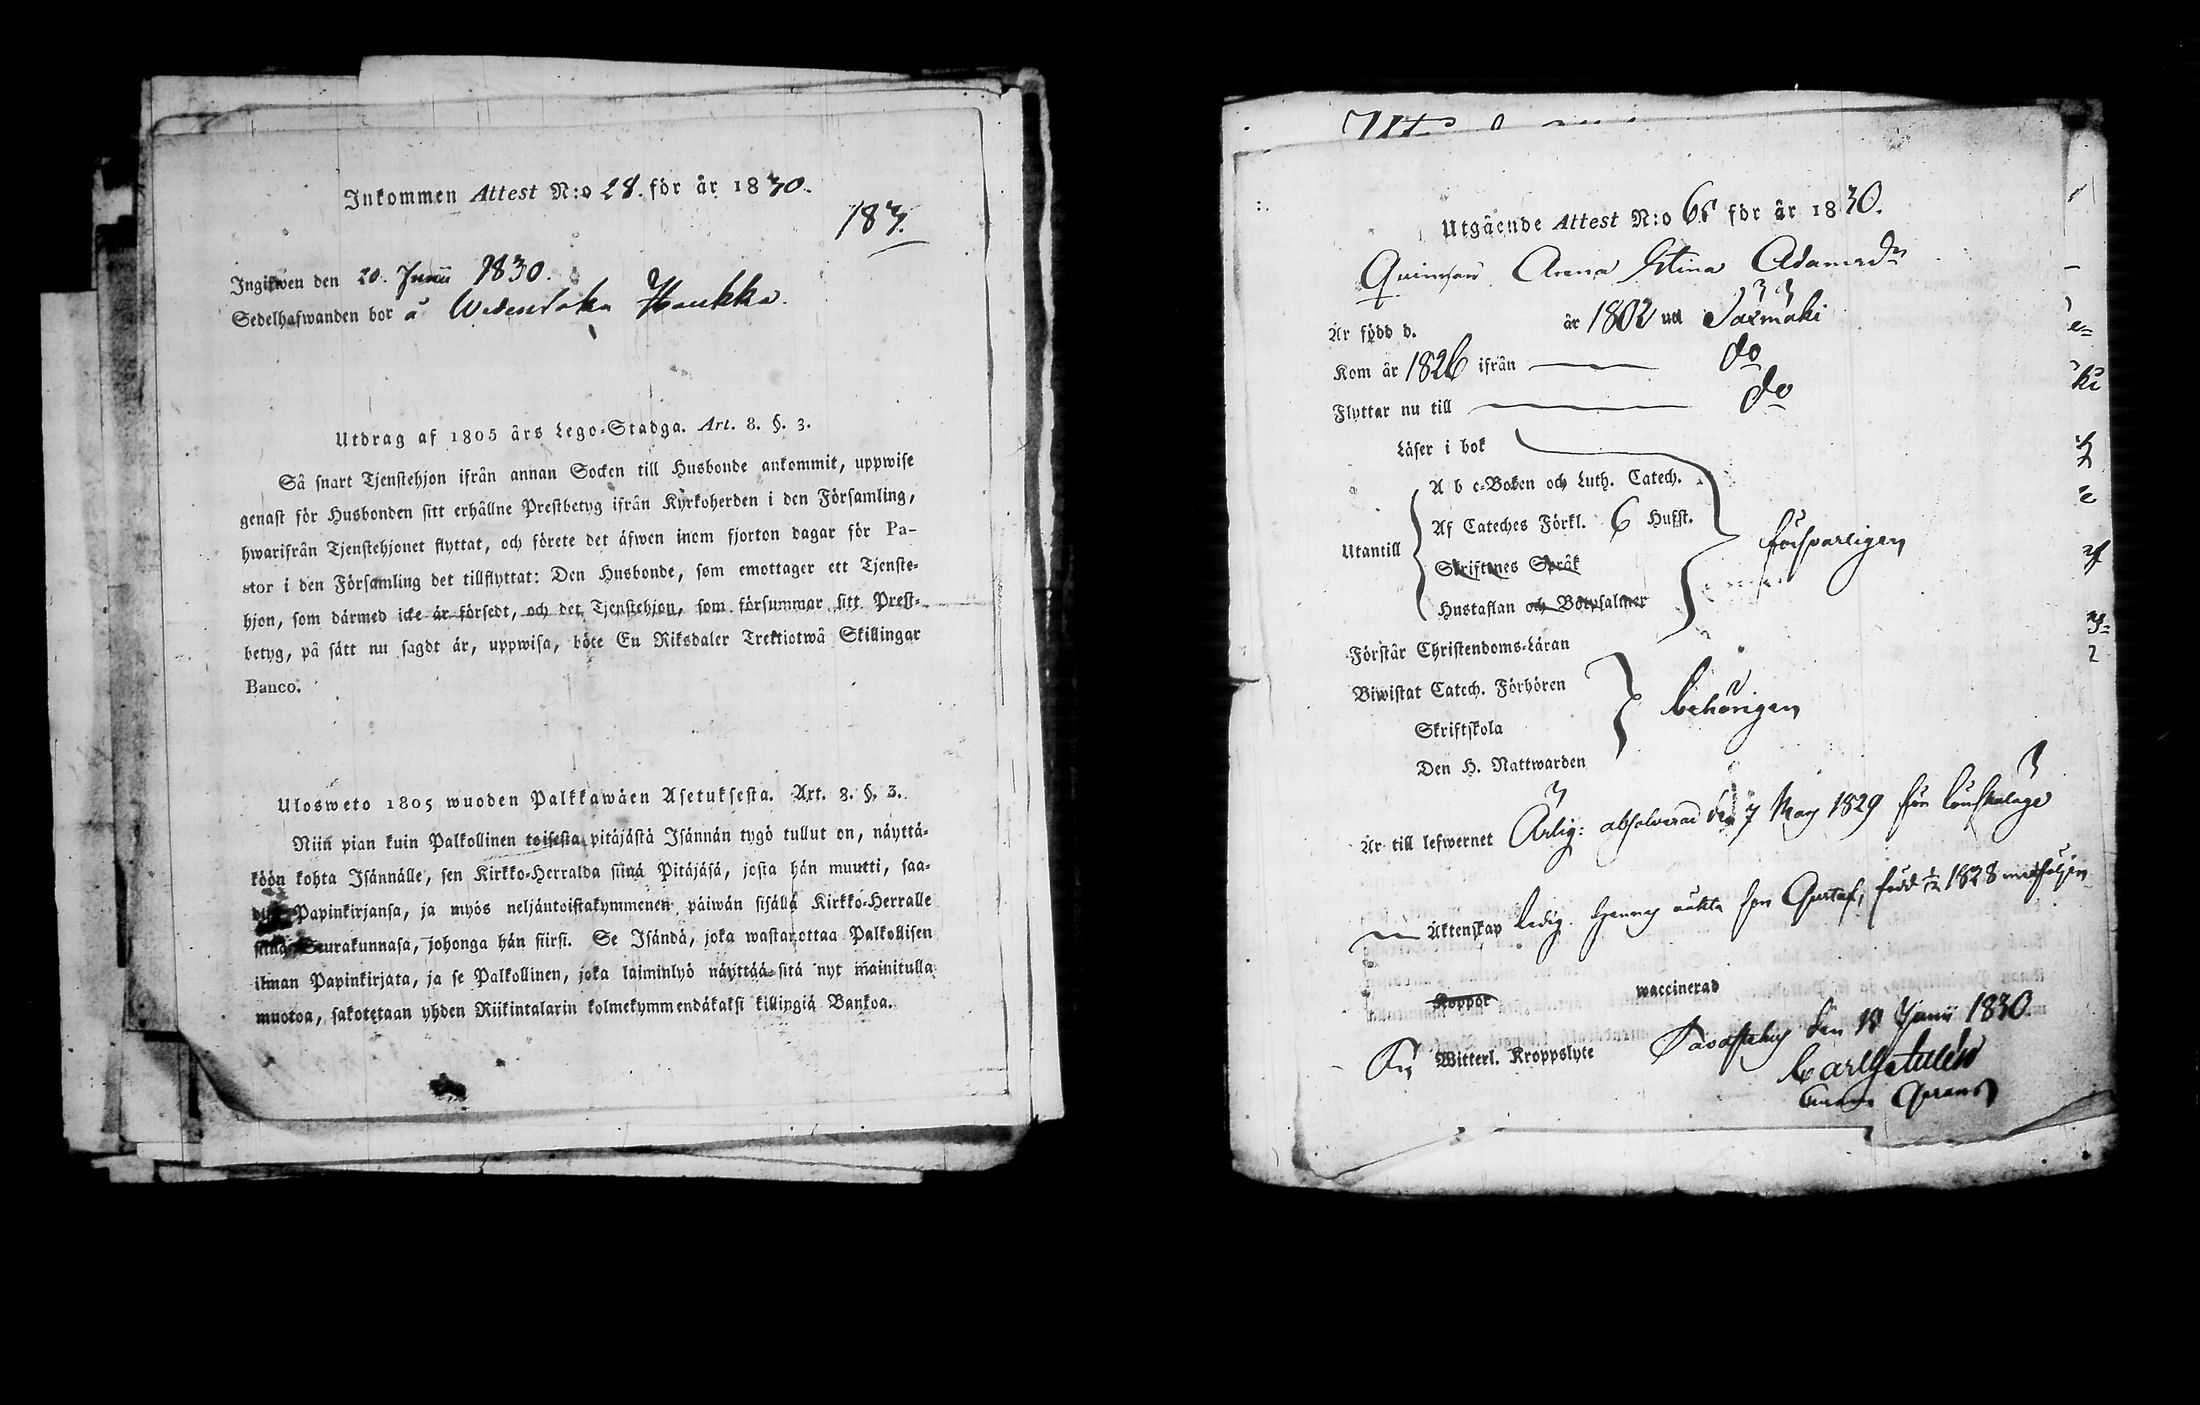 Inkommen Attest N:o 28. för år 1830.
183.
Ingifwen den 20. Junii 1830.
Sedelhafwanden bor å Wedentaka Haukka.
Utdrag af 1805 års Lego-Stadga. Art. 8. §. 3.
Så snart Tjenstehjon ifrån annan Socken till Husbonde ankommit, uppwise
genast för Husbonden sitt erhållne Prestbetyg ifrån Kyrkoherden i den Församling,
hwarifrån Tjenstehjonet flyttat, och förete det äfwen inom fjorton dagar för Pa-
stor i den Församling det tillflyttat: Den Husbonde, som emottager ett Tjenste-
hjon, som därmed icke är försedt, och det Tjenstehjon, som försummar sitt Prest-
betyg, på sätt nu sagdt är, uppwisa, böte En Riksdaler Trettiotwå Skillingar
Banco.
Ulosweto 1805 wuoden Palkkawäen Asetuksesta. Art. 8. §. 3.
Niin pian kuin Palkollinen toisesta pitäjästä Isännän tygö tullut on, näyttä-
köön kohta Isännälle, sen Kirkko-Herralda siinä Pitäjäsä, josta hän muutti, saa-
Papinkirjansa, ja myös neljäntoistakymmenen päiwän sisällä Kirkko-Herralle
siinä Seurakunnasa, johonga hän siirsi. Se Isändä, joka wastanottaa Palkollisen
ilman Papinkirjata, ja se Palkollinen, joka laiminlyö näyttää sitä nyt mainitulla
muotoa, sakotetaan yhden Riikintalarin kolmekymmendäkaksi killingiä Bankoa.
Utgående Attest N:o 65 för år 1830.
Qvinnan Anna Stina Adamsdr
Är född d. år 1802 uti Sarmäki
Kom år 1826 ifrån do
Flyttar nu till do
Läser i bok
A b c-Boken och Luth. Catech.
Af Cateches Förkl. 6 Hufst.
Utantill försvarligen
Skriftenes Språk
Hustaflan och Botpsalmer
Förstår Christendoms-Läran
Biwistat Catech. Förhören
behörigen
Skriftskola
Den H. Nattwarden
Är till lefwernet Ärlig: absolverad den 7 Maij 1829 för lönskaläge
Äktenskap ledig. Hennes oäkta son Gustaf, född 1828 medföljer
Koppor waccinerad
Ej Witterl. Kroppslyte Tavastehus den 18 Junii 1830